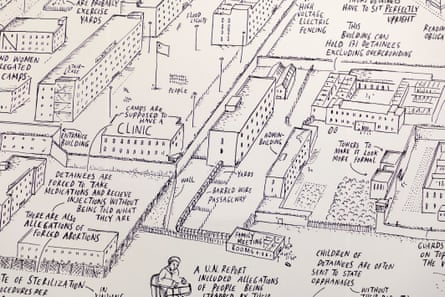 ARE PROBABLY
EXERCISE
YARDS
FLOOD
LIGHTS
HIGH
VOLTAGE
ELECTRIC
FENCING
HAVE TO SIT PERFECTLY
UPRIGHT
READING
THIS
BUILDING CAN
HOLD 191 DETAINEES
EXCLUDING OVERCROWDING
ND WOMEN
EGREGATED
CAMPS.
PEOPLE
CAMPS ARE
SUPPOSED TO
HAVE A
CLINIC
ENTRANCE
BUILDING
ADMIN-
BUILDING
TOWERS TO
MAKE IT LOOK
MORE FORMAL
DETAINEES ARE
FORCED TO TAKE
MEDICATION AND RECIEVE
INJECTIONS WITHOUT
BEING TOLD WHAT
THEY ARE
WALL
YARDS
BARBED WIRE
PASSAGEWAY
THERE ARE ALSO
ALLEGATIONS OF
FORCED ABORTIONS
FAMILY
MEETING
ROOMS
GUARDS
ON TOP
ON THE
CHILDREN OF
DETAINEES ARE OFTEN
SENT TO STATE
ORPHANAGES
A U.N. REPORT
INCLUDED ALLEGATIONS
OF PEOPLE BEING
STRAPPED BY THEIR
TE OF STERILIZATION
OCEDURES PER
IN
WITHOUT